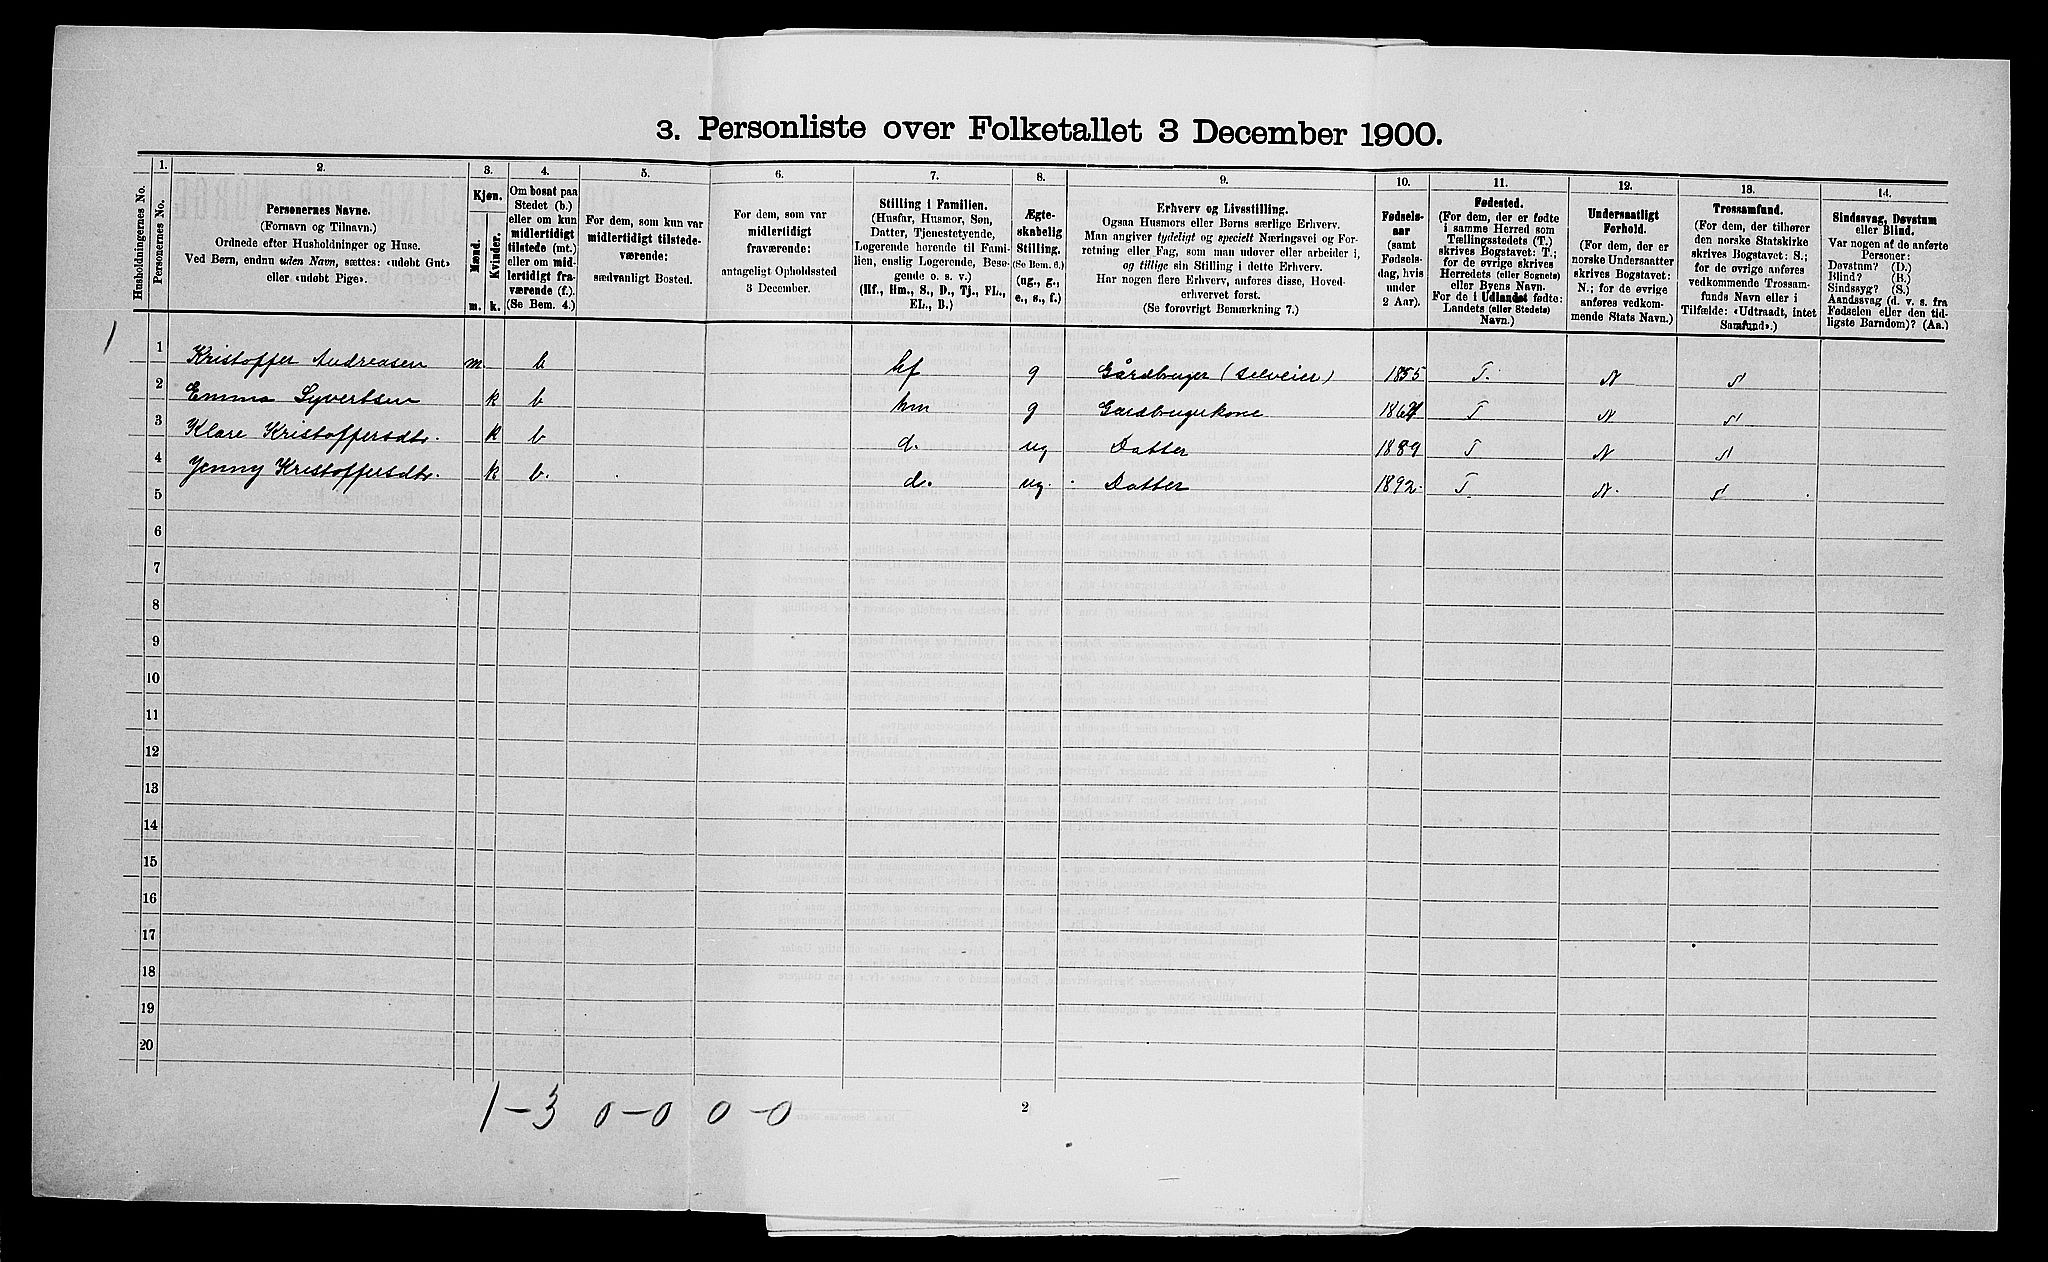 3. Personliste over Folketallet 3 December 1900.
Husholdningernes No.
1.
Personernes No.
2.
Personernes Navne.
(Fornavn og Tilnavn.)
Ordnede efter Husholdninger og Huse.
Ved Børn, endnu uden Navn, sættes: «udøbt Gut»
eller «udøbt Pige».
3.
Kjøn.
Mænd.
Kvinder.
m. k.
4.
Om bosat paa
Stedet (b.)
eller om kun
midlertidigt
tilstede (mt.)
eller om mid-
lertidigt fra-
værende (f.).
(Se Bem. 4.)
5.
For dem, som kun var
midlertidigt tilstede-
værende:
sædvanligt Bosted.
6.
For dem, som var
midlertidigt
fraværende:
antageligt Opholdssted
3 December.
7.
Stilling i Familien.
(Husfar, Husmor, Søn,
Datter, Tjenestetyende,
Logerende hørende til Fami-
lien, enslig Logerende, Besø-
gende o. s. v.)
(Hf., Hm., S., D., Tj., FL.,
EL., B.)
8.
Ægte-
skabelig
Stilling.
(Se Bem. 6.)
(ug., g.,
e., s., f.)
9.
Erhverv og Livsstilling.
Ogsaa Husmors eller Børns særlige Erhverv.
Man angiver tydeligt og specielt Næringsvei og For-
retning eller Fag, som man udøver eller arbeider i,
og tillige sin Stilling i dette Erhverv.
Har nogen flere Erhverv, anføres disse, Hoved-
erhvervet først.
(Se forøvrigt Bemærkning 7.)
10.
Fødsels-
aar
(samt
Fødsels-
dag, hvis
under
2 Aar).
11.
Fødested.
(For dem, der er fødte
i samme Herred som
Tællingsstedets (T.)
skrives Bogstavet: T.;
for de øvrige skrives
Herredets (eller Sognets)
eller Byens Navn.
For de i Udlandet fødte:
Landets (eller Stedets)
Navn.)
12.
Undersaatligt
Forhold.
(For dem, der er
norske Undersaatter
skrives Bogstavet:
N.; for de øvrige
anføres vedkom-
mende Stats Navn.)
13.
Trossamfund.
(For dem, der tilhører
den norske Statskirke
skrives Bogstavet: S.;
for de øvrige anføres
vedkommende Trossam-
funds Navn eller i
Tilfælde: «Udtraadt, intet
Samfund».)
14.
Sindssvag, Døvstum
eller Blind.
Var nogen af de anførte
Personer:
Døvstum? (D.)
Blind? (B.)
Sindssyg? (S.)
Aandssvag (d. v. s. fra
Fødselen eller den tid-
ligste Barndom)? (Aa.)
1 1 Kristoffer Andreasen m. b hf g Gårdbruger (selveier) 1855 T. N S
2 Emma Syvertsen k b hm g Gardbrugerkone T N S
3 Klare Kristoffersdtr. k b d. ug Datter 1889 T N S
4 Jenny Kristoffersdtr. k b. d. ug. Datter 1892. T N. S
5
6
7
8
9
10
11
12
13
14
15
16
17
18
19
20
1-3 0-0 0-0
2